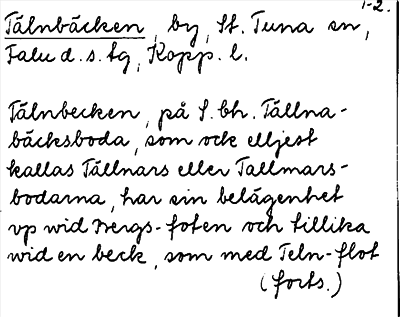 1-2.
Tälnbäcken, by, St. Tuna sn,
Falu d.s. tg, Kopp. l.
Tälnbecken, på S. bh. Tällna-
bäcksboda, som ock elljest
kallas Tällnars eller Tallmars-
bodarna, har sin belägenhet
vp wid Bergs-foten och tillika
wid en beck, som med Teln-flot
(forts.)